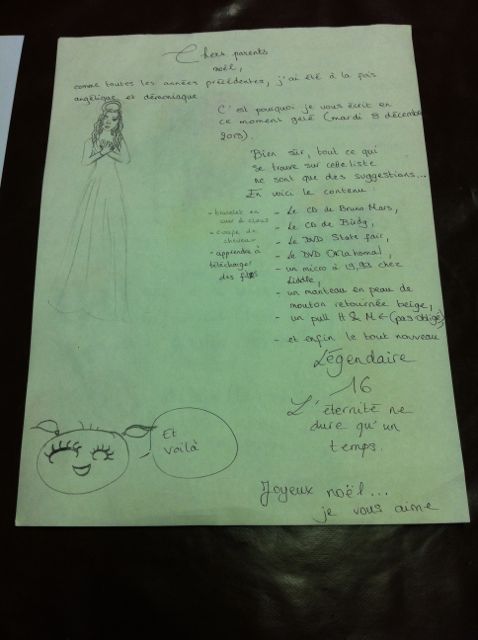 Chers parents
noël,
comme toutes les années précédentes, j'ai été à la fois
angélique et démoniaque
C'est pourquoi je vous écrit en
ce moment gelé (mardi 3 décembre
2013).
Bien sûr, tout ce qui
se trouve sur cette liste
ne sont que des suggestions...
En voici le contenu:
- bracelet en
cuir à clous
- coupe de
cheveux
- apprendre à
télécharger
des films
- Le CD de Bruno Mars,
- Le CD de Birdy,
- Le DVD State fair,
- Le DVD Oklahoma!,
- un micro à 19,99 chez
- un manteau en peau de
mouton retournée beige,
- un pull H & M ← (pas obligé)
- et enfin le tout nouveau
Légendaire
16
L'éternité ne
dure qu'un
temps.
Et
voilà
Joyeux noël...
je vous aime